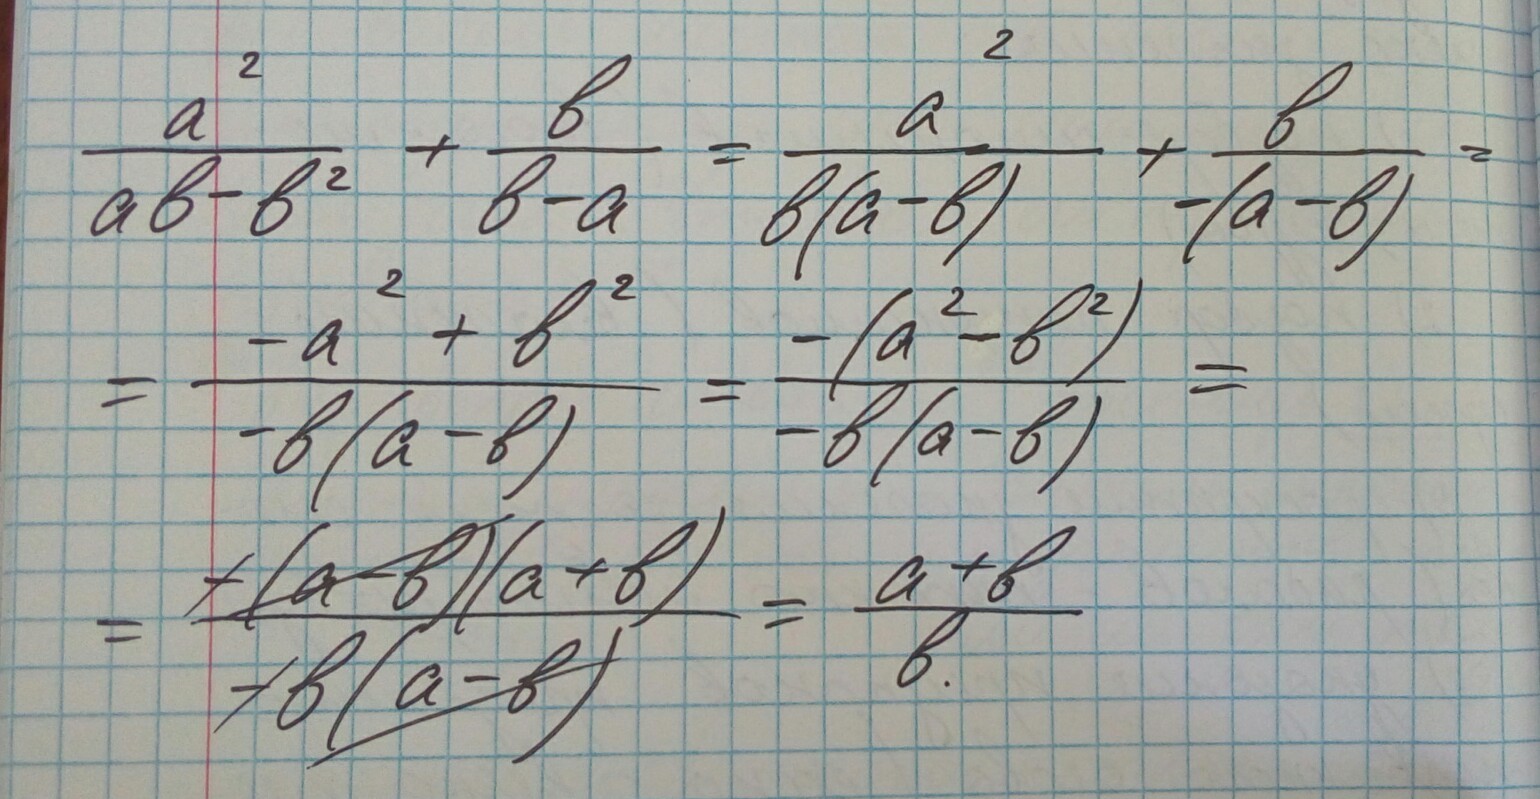 a²/(ab-b²) + b/(b-a) = a²/(b(a-b)) + b/(-(a-b)) =
= (-a²+b²)/(-b(a-b)) = (-(a²-b²))/(-b(a-b)) =
= (-(a-b)(a+b))/(-b(a-b)) = (a+b)/b.